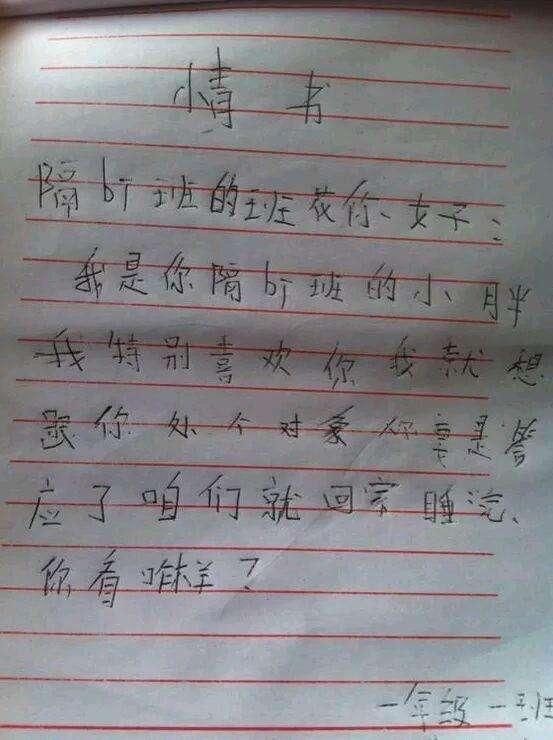 情书
隔bi班的班花你、女子：
我是你隔bi班的小月半
我特别喜欢你我就想
跟你处个对象你要是答
应了咱们就回家睡流、
你看咋样？
一年级一班